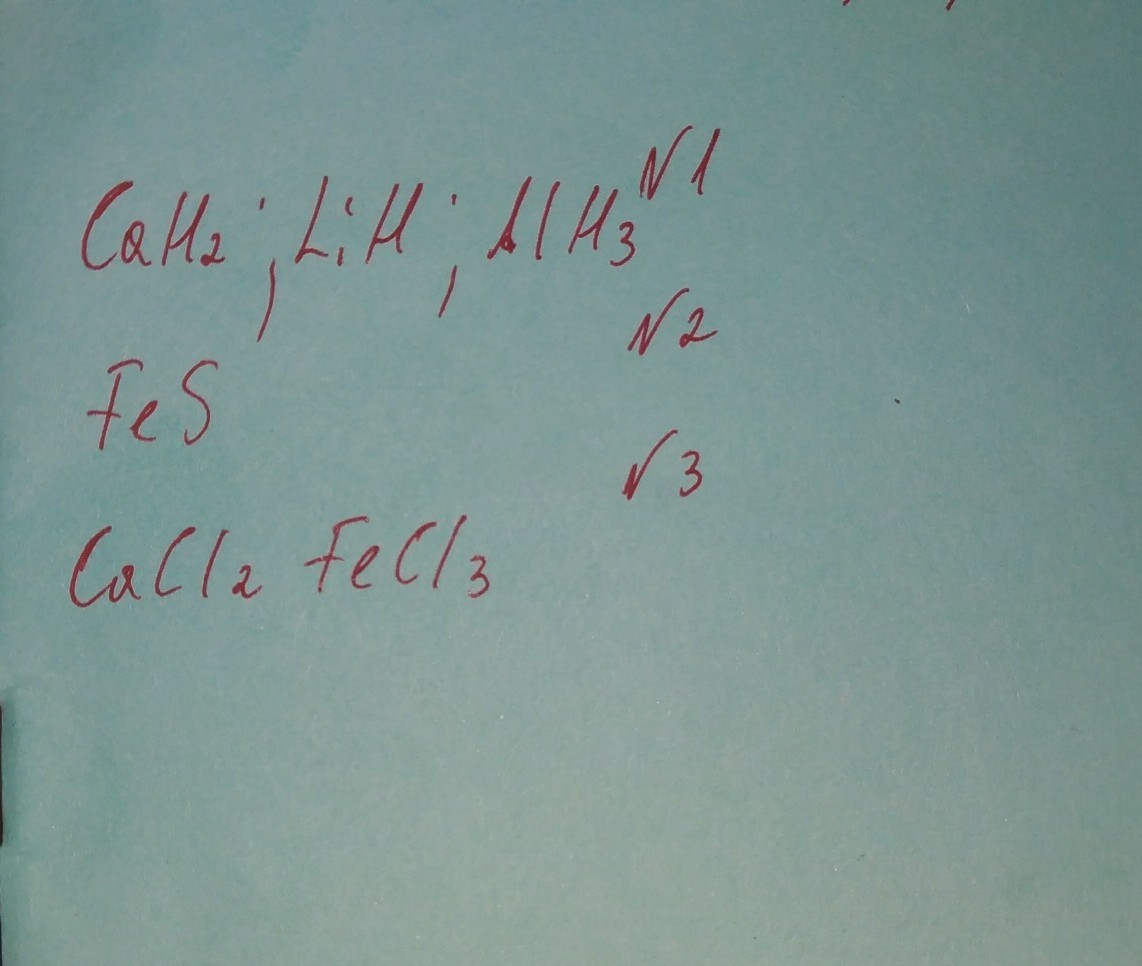 N1
CaH₂; LiH; AlH₃
N2
FeS
N3
CaCl₂ FeCl₃